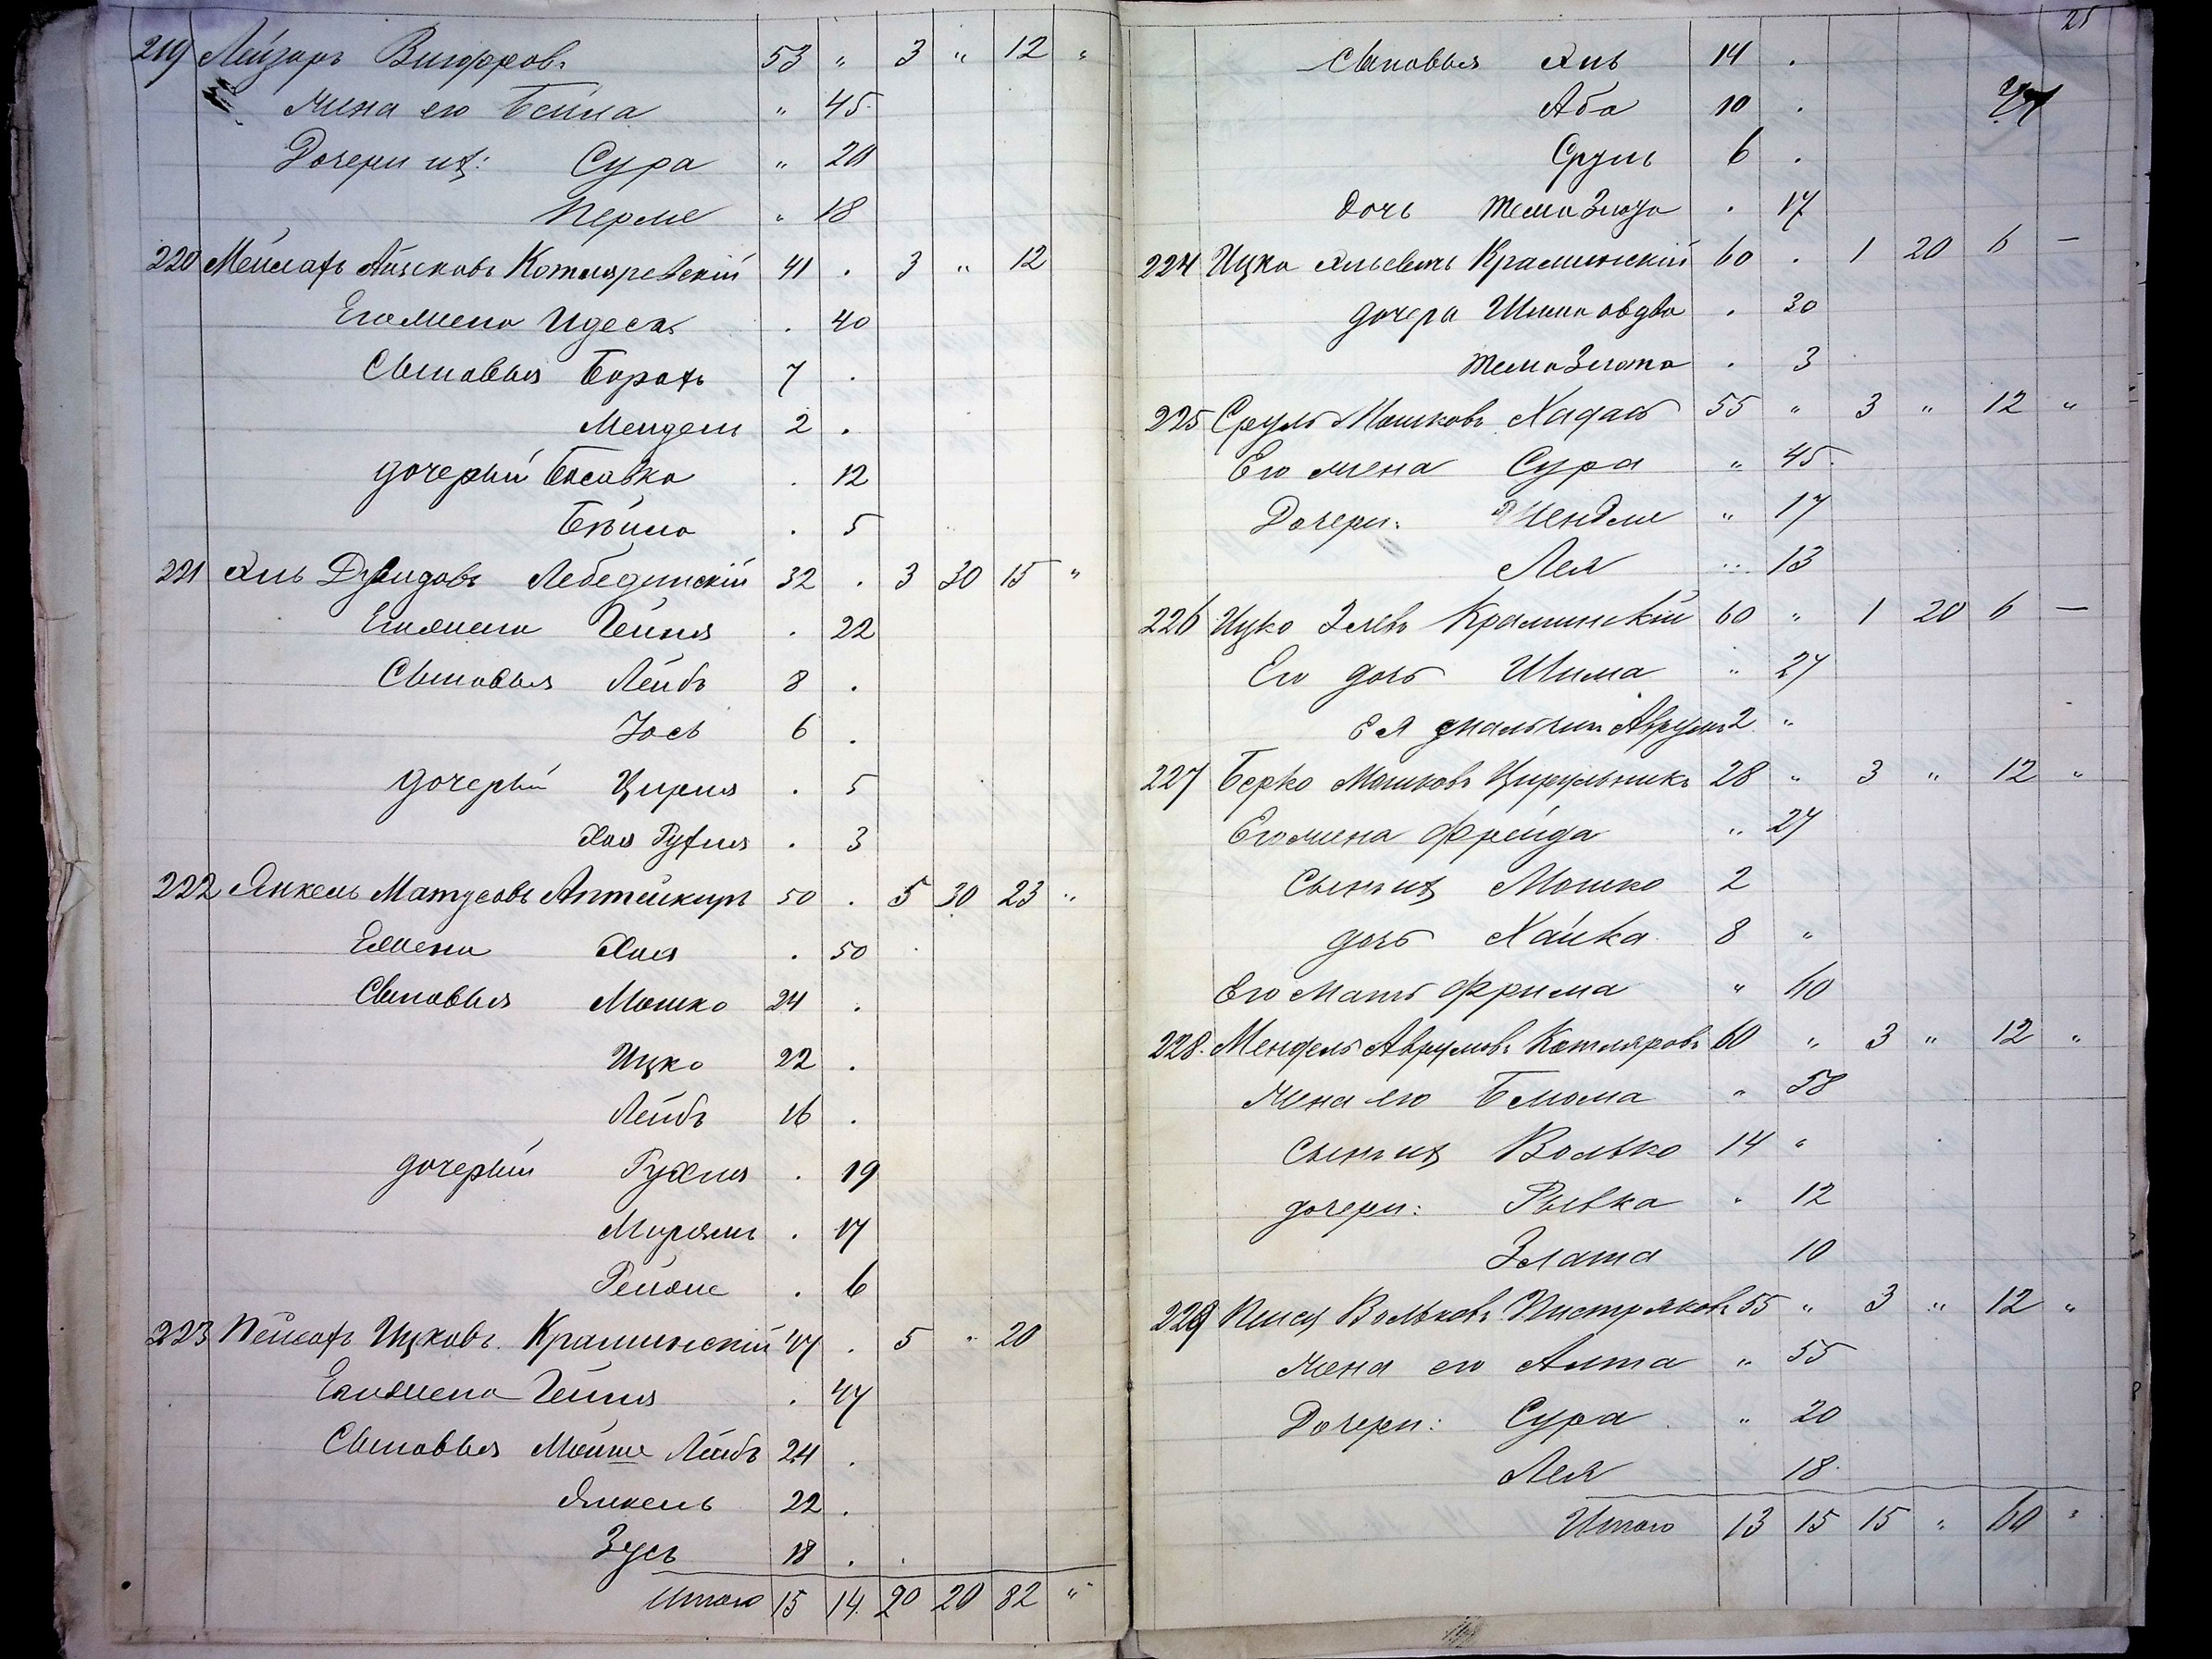 219 Лейзоръ 53 " 3 " 12 "
жена его Бейла " 45
Дочери ихъ: Сура " 20
Перле " 18
220 Мейлахъ Айзиковъ Котляревскій 41 . 3 " 12
Его жена Идесъ . 40
Сыновья Борохъ 7 .
Мендель 2 .
дочерьи Басовка . 12
Бейла . 5
221 Хиль Дувидовъ Лебединскій 32 . 3 30 15 "
Его жена Гейня . 22
Сыновья Лейбъ 8 .
Іось 6 .
дочерьи Цирля . 5
Хая Рухля . 3
222 Янкель Матусовъ Аптейкиръ 50 . 5 30 23 "
Е жена Хая . 50
Сыновья Мошко 24 .
Ицко 22 .
Лейбъ 16 .
дочерьи Рухля . 19
Мирьямъ . 17
. 6
223 Пейсахъ Ицковъ Краминскій 47 . 5 " 20
Его жена Гейня . 47
Сыновья Мойше Лейбъ 24 .
Янкель 22 .
Зусь 18 .
Итого 15 14 20 20 82 "
25
Сыновья Хиль 14 .
Аба 10 .
Сруль 6 .
дочь Тема Злота . 17
224 Ицко Краминскій 60 . 1 20 6 —
дочера Шима вдва . 30
Тема Злота . 3
225 Сруль Мошковъ Хадасъ 55 " 3 " 12 "
Его жена Сура " 45
Дочери: Шендля " 17
Лея 13
226 Ицко Краминскій 60 " 1 20 6 —
Его дочь Шима " 27
Ея мальчик Аврумъ 2 "
227 Берко Мошковъ Цирульникъ 28 " 3 " 12 "
Его жена Фрейда " 27
Сынъ ихъ Мошко 2
дочь Хайка 8 "
Его мать Фрима " 40
228. Мендель Аврумовъ Котляровъ 60 " 3 " 12 "
жена его Блюма " 58
Сынъ ихъ Волько 14 "
дочери: Рывка " 12
Злата 10
229 Вольковъ Пистряковъ 55 " 3 " 12 "
жена его Алта " 55
Дочери: Сура " 20
Лея 18
Итого 13 15 15 " 60 "